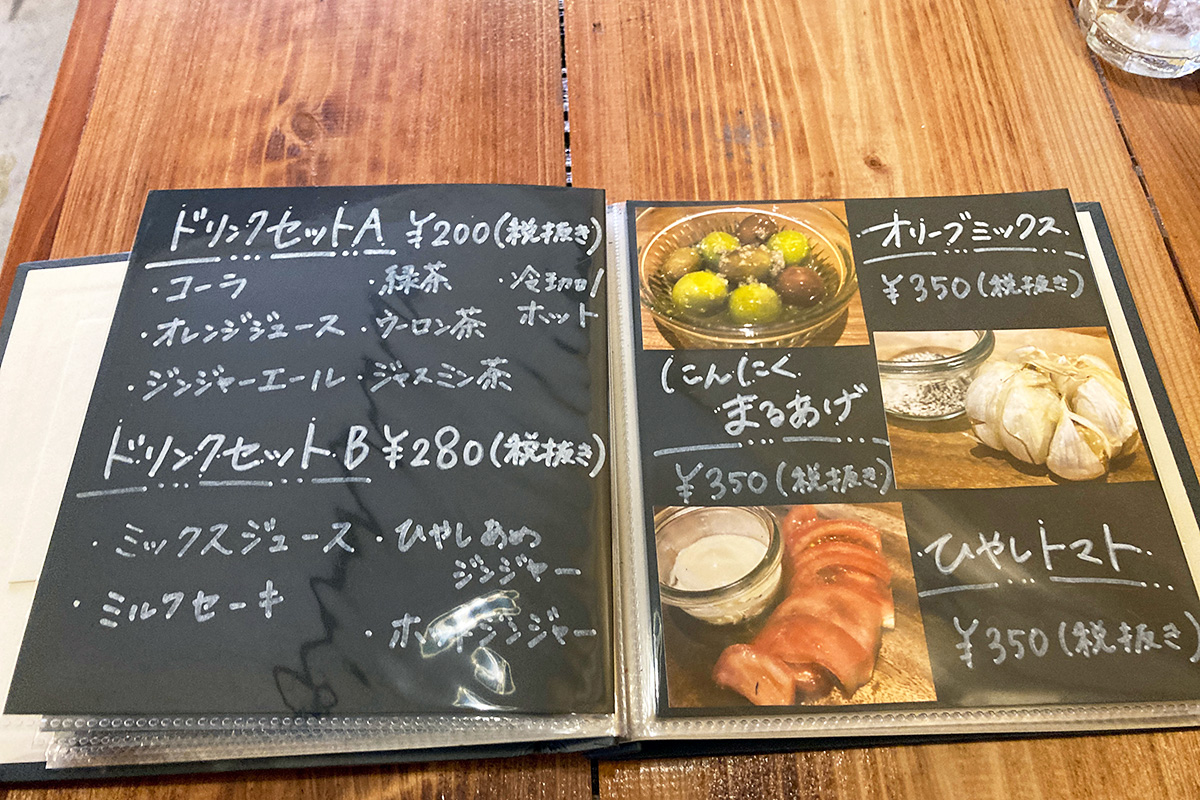 ドリンクセットA ¥200(税抜き)
・コーラ ・緑茶 ・冷コロ/
ホット
・オレンジジュース ・ウーロン茶
・ジンジャーエール ・ジャスミン茶
ドリンクセットB ¥280(税抜き)
・ミックスジュース ・ひやしあめ
ジンジャー
・ミルクセーキ
・ホットジンジャー
オリーブミックス
¥350(税抜き)
にんにく
まるあげ
¥350(税抜き)
ひやしトマト
¥350(税抜き)